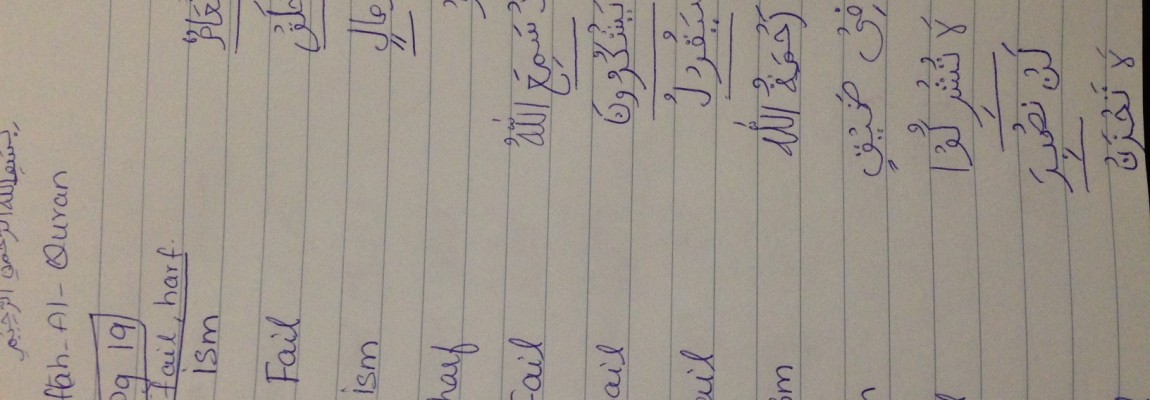 بسم الله الرحمن الرحيم
ftah-Al-Quran
pg 19
fail, harf.
ism
Fail
ism
harf
Fail سَمِعَ اللّٰهُ
ail يَشْكُرُونَ
ail سَيَقُولُ
sm رَحْمَةُ اللّٰهِ
فِي ضَيْقٍ
لَا تُشْرِكُوا
لَنْ نَصْبِرَ
لَا تَحْزَنْ